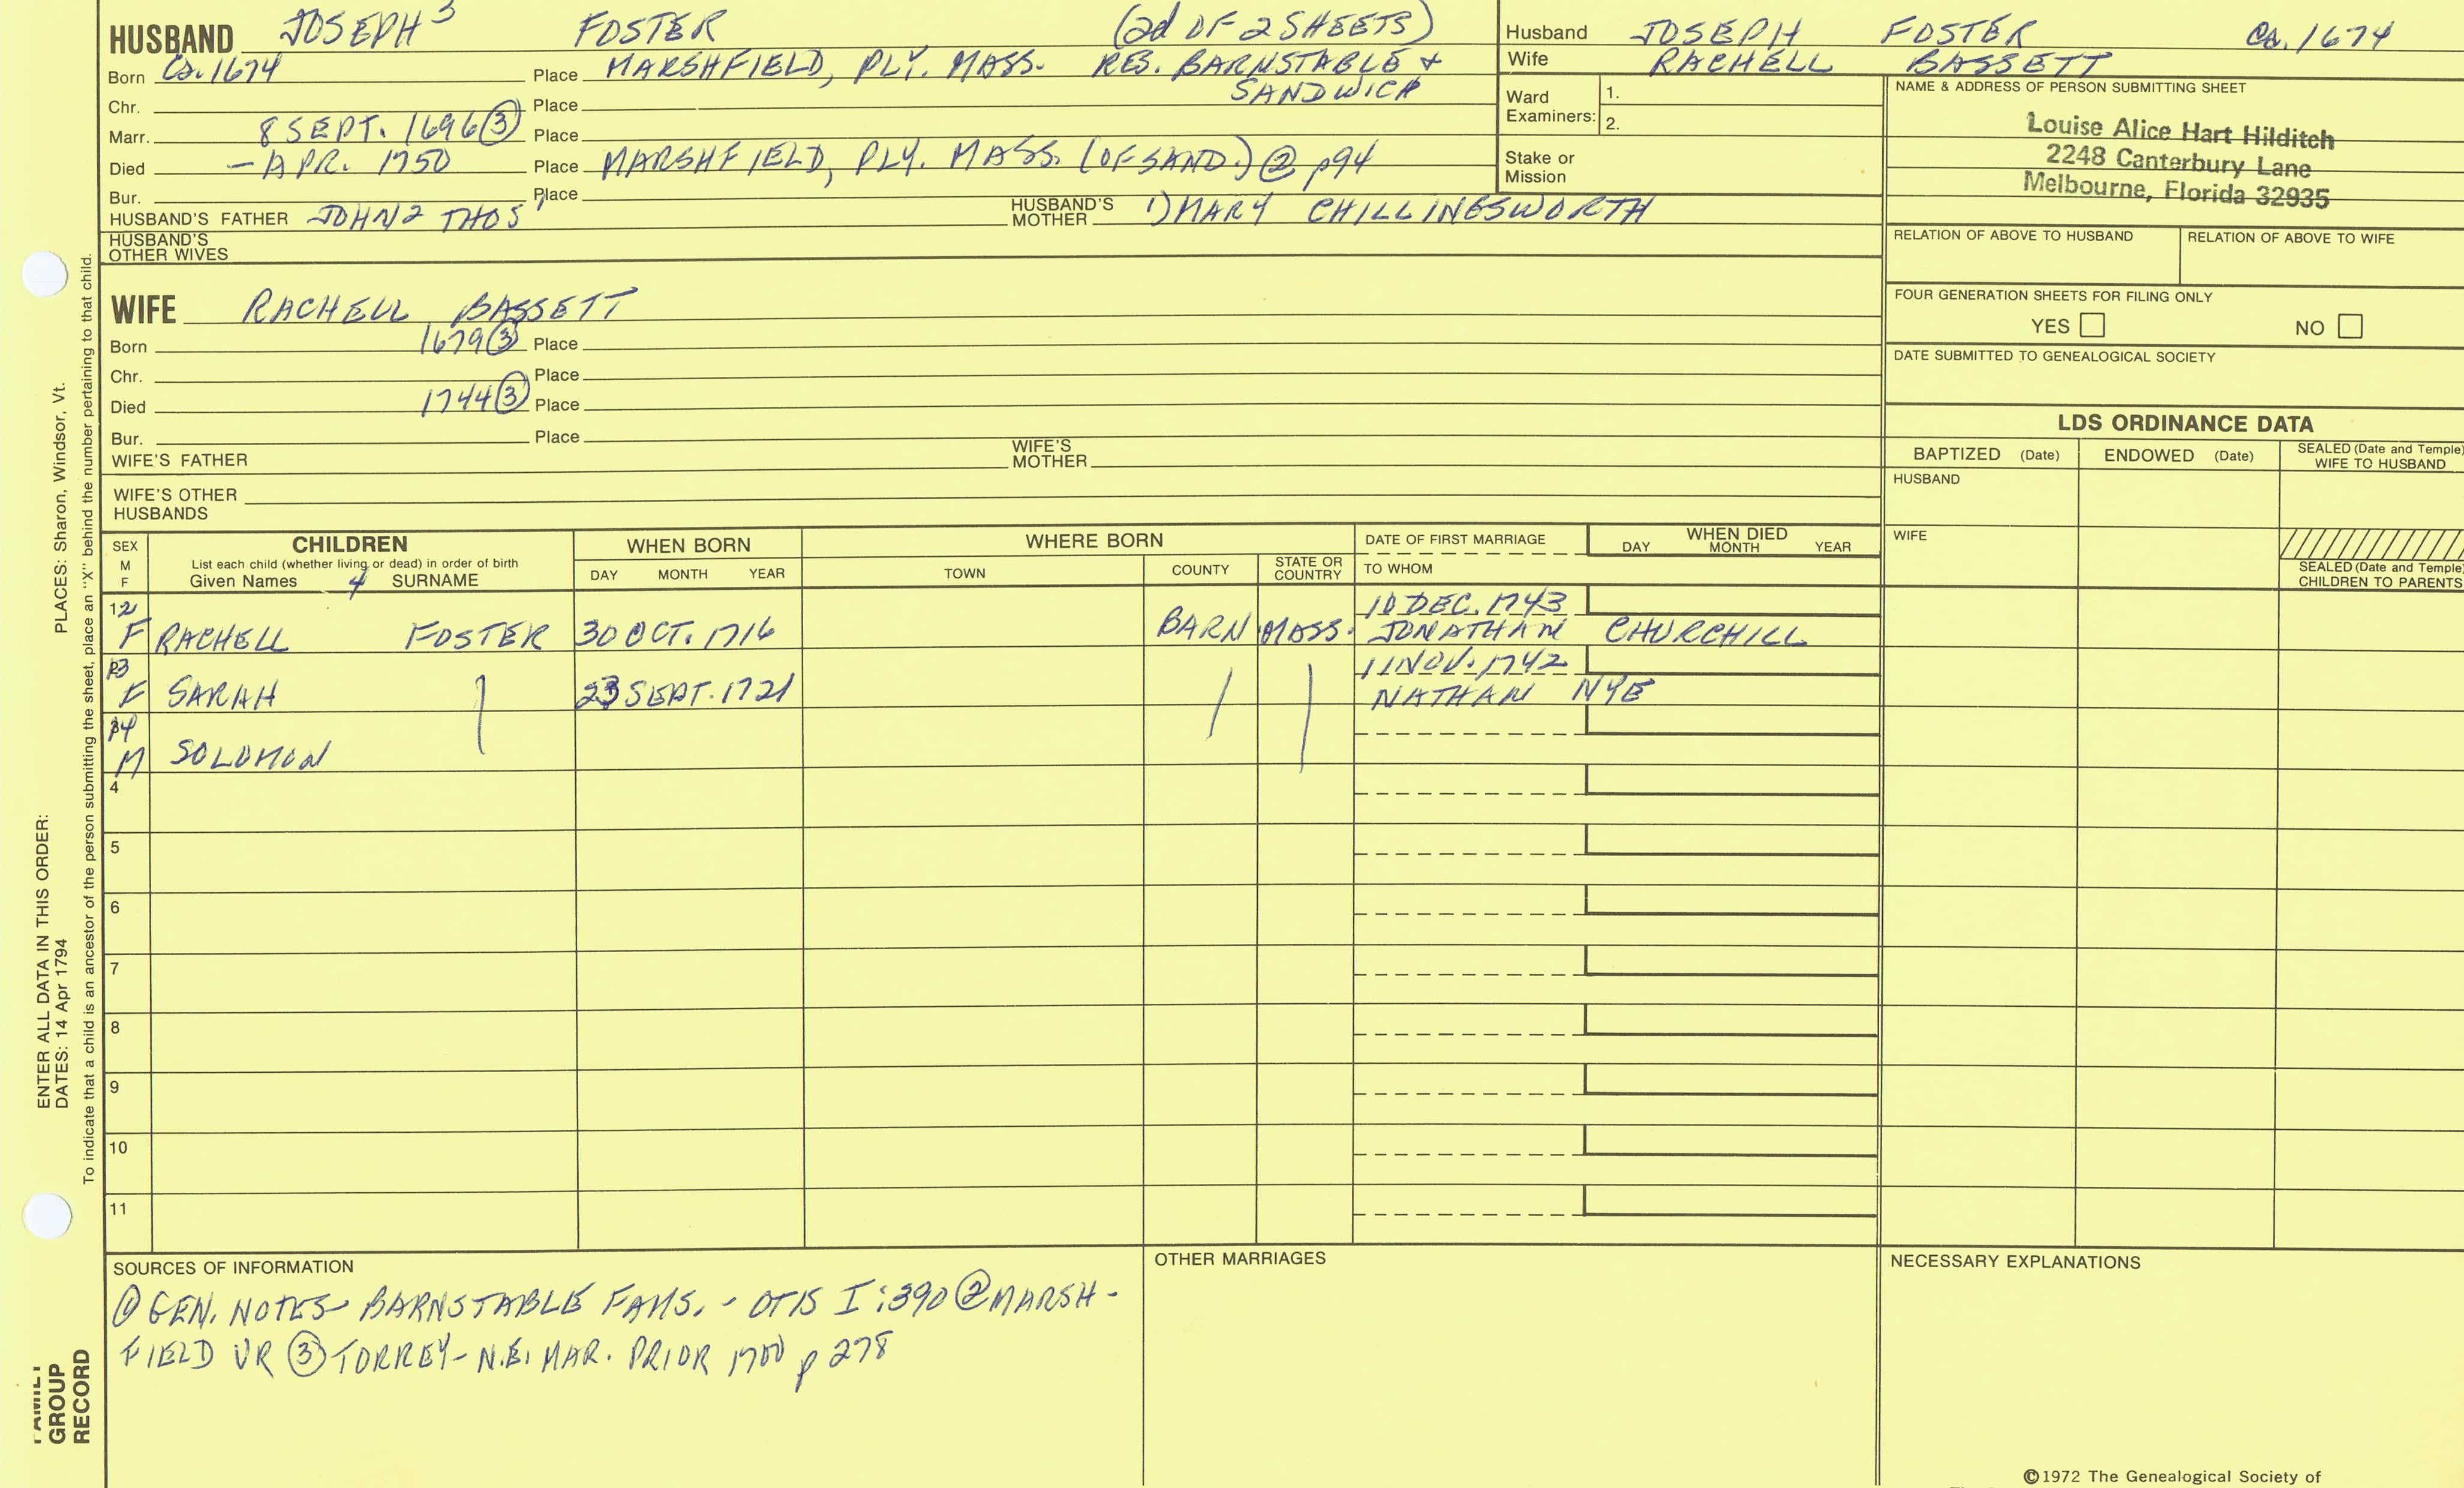 HUSBAND JOSEPH 3 FOSTER (2d OF 2 SHEETS)
Born Ca. 1674 Place MARSHFIELD, PLY. MASS. RES. BARNSTABLE +
SANDWICH
Chr. Place
Marr. 8 SEPT. 1696 ③ Place
Died - APR. 1750 Place MARSHFIELD, PLY. MASS. (OF SAND.) ② p94
Bur. Place
HUSBAND'S FATHER JOHN 2 THOS 1 HUSBAND'S MOTHER 1) MARY CHILLINGSWORTH
HUSBAND'S OTHER WIVES
Husband JOSEPH FOSTER Ca. 1674
Wife RACHELL BASSETT
Ward Examiners: 1.
2.
Stake or Mission
NAME & ADDRESS OF PERSON SUBMITTING SHEET
Louise Alice Hart Hilditch
2248 Canterbury Lane
Melbourne, Florida 32935
RELATION OF ABOVE TO HUSBAND RELATION OF ABOVE TO WIFE
FOUR GENERATION SHEETS FOR FILING ONLY
YES NO
DATE SUBMITTED TO GENEALOGICAL SOCIETY
WIFE RACHELL BASSETT
Born 1679 ③ Place
Chr. Place
Died 1744 ③ Place
Bur. Place
WIFE'S FATHER WIFE'S MOTHER
WIFE'S OTHER HUSBANDS
LDS ORDINANCE DATA
BAPTIZED (Date) ENDOWED (Date) SEALED (Date and Temple) WIFE TO HUSBAND
HUSBAND
WIFE
SEALED (Date and Temple) CHILDREN TO PARENTS
SEX M F
CHILDREN
List each child (whether living or dead) in order of birth
Given Names SURNAME
WHEN BORN
DAY MONTH YEAR
WHERE BORN
TOWN COUNTY STATE OR COUNTRY
DATE OF FIRST MARRIAGE
TO WHOM
WHEN DIED
DAY MONTH YEAR
12 10 DEC. 1743
F RACHELL FOSTER 30 OCT. 1716 BARN MASS. JONATHAN CHURCHILL
13 11 NOV. 1742
F SARAH 23 SEPT. 1721 NATHAN NYE
14
M SOLOMON
4
5
6
7
8
9
10
11
SOURCES OF INFORMATION
① GEN. NOTES- BARNSTABLE FAMS. - OTIS I:390 ② MARSH-
FIELD VR ③ TORREY- N.E. MAR. PRIOR 1700 p 278
OTHER MARRIAGES
NECESSARY EXPLANATIONS
©1972 The Genealogical Society of
PLACES: Sharon, Windsor, Vt.
ENTER ALL DATA IN THIS ORDER:
DATES: 14 Apr 1794
To indicate that a child is an ancestor of the person submitting the sheet, place an "X" behind the number pertaining to that child.
FAMILY
GROUP
RECORD